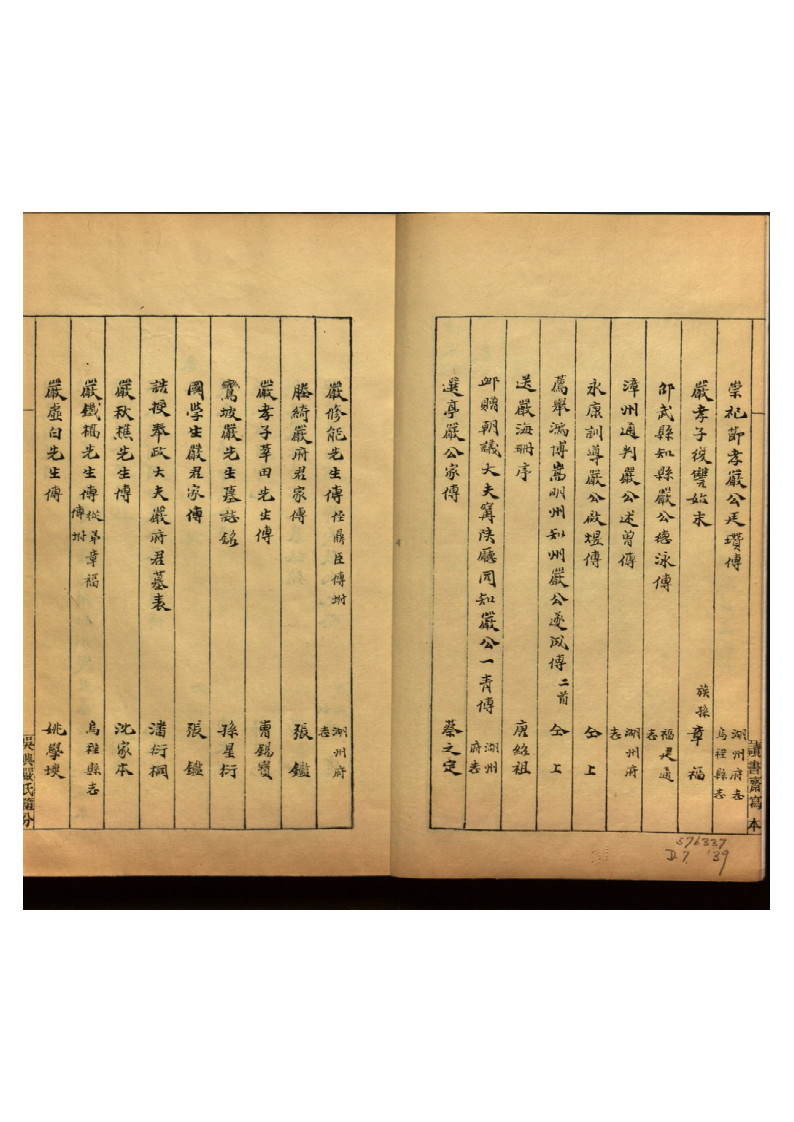 崇祀節孝嚴公廷瓚傳 湖州府志 烏程縣志
嚴孝子復讐始末 族孫章福
邵武縣知縣嚴公德泳傳 福建通志
漳州通判嚴公述曾傳 湖州府志
永康訓導嚴公啟煜傳 仝上
薦舉鴻博嵩明州知州嚴公遂成傳二首 仝上
送嚴海珊序 唐紹祖
卹贈朝議大夫寧陝廳同知嚴公一青傳 湖州府志
選亭嚴公家傳 蔡之定
讀書齋寫本
576327
D.7 '39
嚴修能先生傳 侄鼎臣傳坿 湖州府志
勝綺嚴府君家傳 張鑑
嚴孝子莘田先生傳 曹錫寶
鷺坡嚴先生墓誌銘 孫星衍
國學生嚴君家傳 張鑑
誥授奉政大夫嚴府君墓表 潘衍桐
嚴秋樵先生傳 沈家本
嚴鐵橋先生傳 從弟章福傳坿 烏程縣志
嚴虛白先生傳 姚學塽
吳興嚴氏隨分